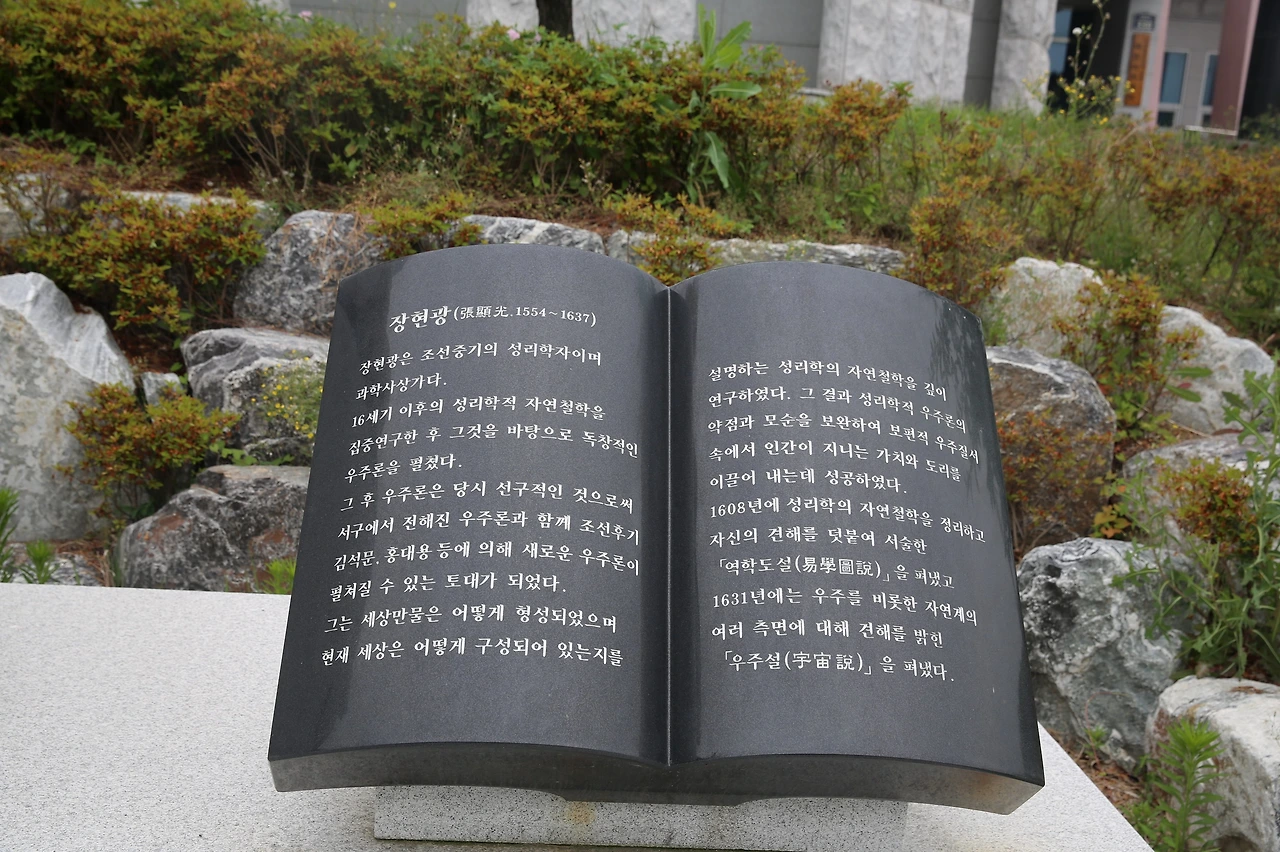 장현광(張顯光.1554~1637)
장현광은 조선중기의 성리학자이며
과학사상가다.
16세기 이후의 성리학적 자연철학을
집중연구한 후 그것을 바탕으로 독창적인
우주론을 펼쳤다.
그 후 우주론은 당시 선구적인 것으로써
서구에서 전해진 우주론과 함께 조선후기
김석문, 홍대용 등에 의해 새로운 우주론이
펼쳐질 수 있는 토대가 되었다.
그는 세상만물은 어떻게 형성되었으며
현재 세상은 어떻게 구성되어 있는지를
설명하는 성리학의 자연철학을 깊이
연구하였다. 그 결과 성리학적 우주론의
약점과 모순을 보완하여 보편적 우주질서
속에서 인간이 지니는 가치와 도리를
이끌어 내는데 성공하였다.
1608년에 성리학의 자연철학을 정리하고
자신의 견해를 덧붙여 서술한
「역학도설(易學圖說)」을 펴냈고
1631년에는 우주를 비롯한 자연계의
여러 측면에 대해 견해를 밝힌
「우주설(宇宙說)」을 펴냈다.